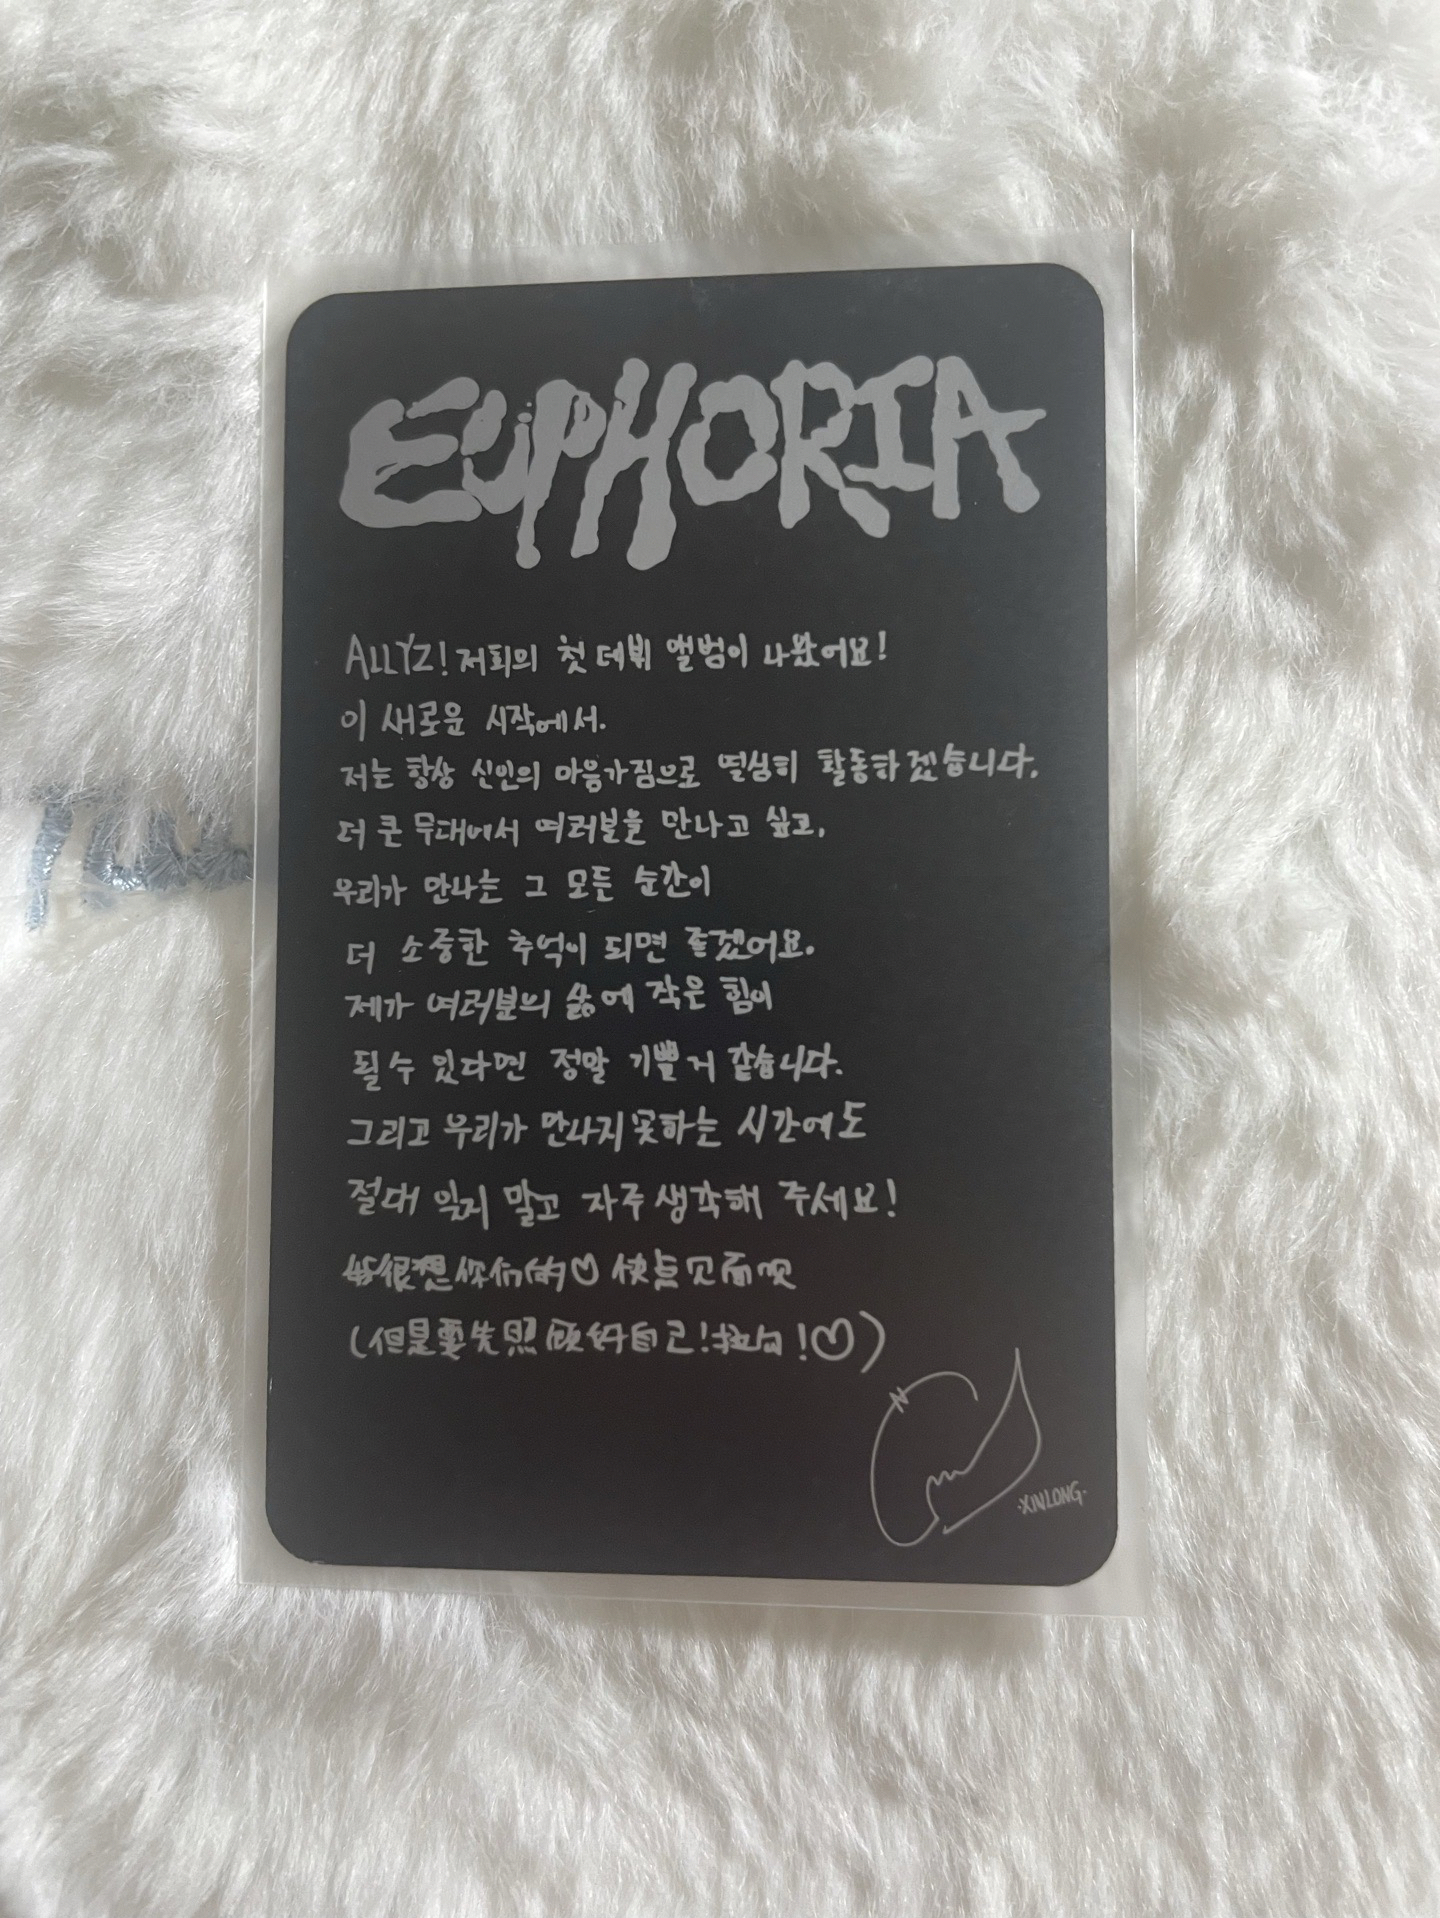 EUPHORIA
ALLYZ! 저희의 첫 데뷔 앨범이 나왔어요!
이 새로운 시작에서.
저는 항상 신인의 마음가짐으로 열심히 활동하겠습니다.
더 큰 무대에서 여러분을 만나고 싶고,
우리가 만나는 그 모든 순간이
더 소중한 추억이 되면 좋겠어요.
제가 여러분의 삶에 작은 힘이
될 수 있다면 정말 기쁠 거 같습니다.
그리고 우리가 만나지 못하는 시간에도
절대 잊지 말고 자주 생각해 주세요!
很想你们的♡ 快点见面呗
(但是要先照顾好自己!拉勾!♡)
·XINLONG·